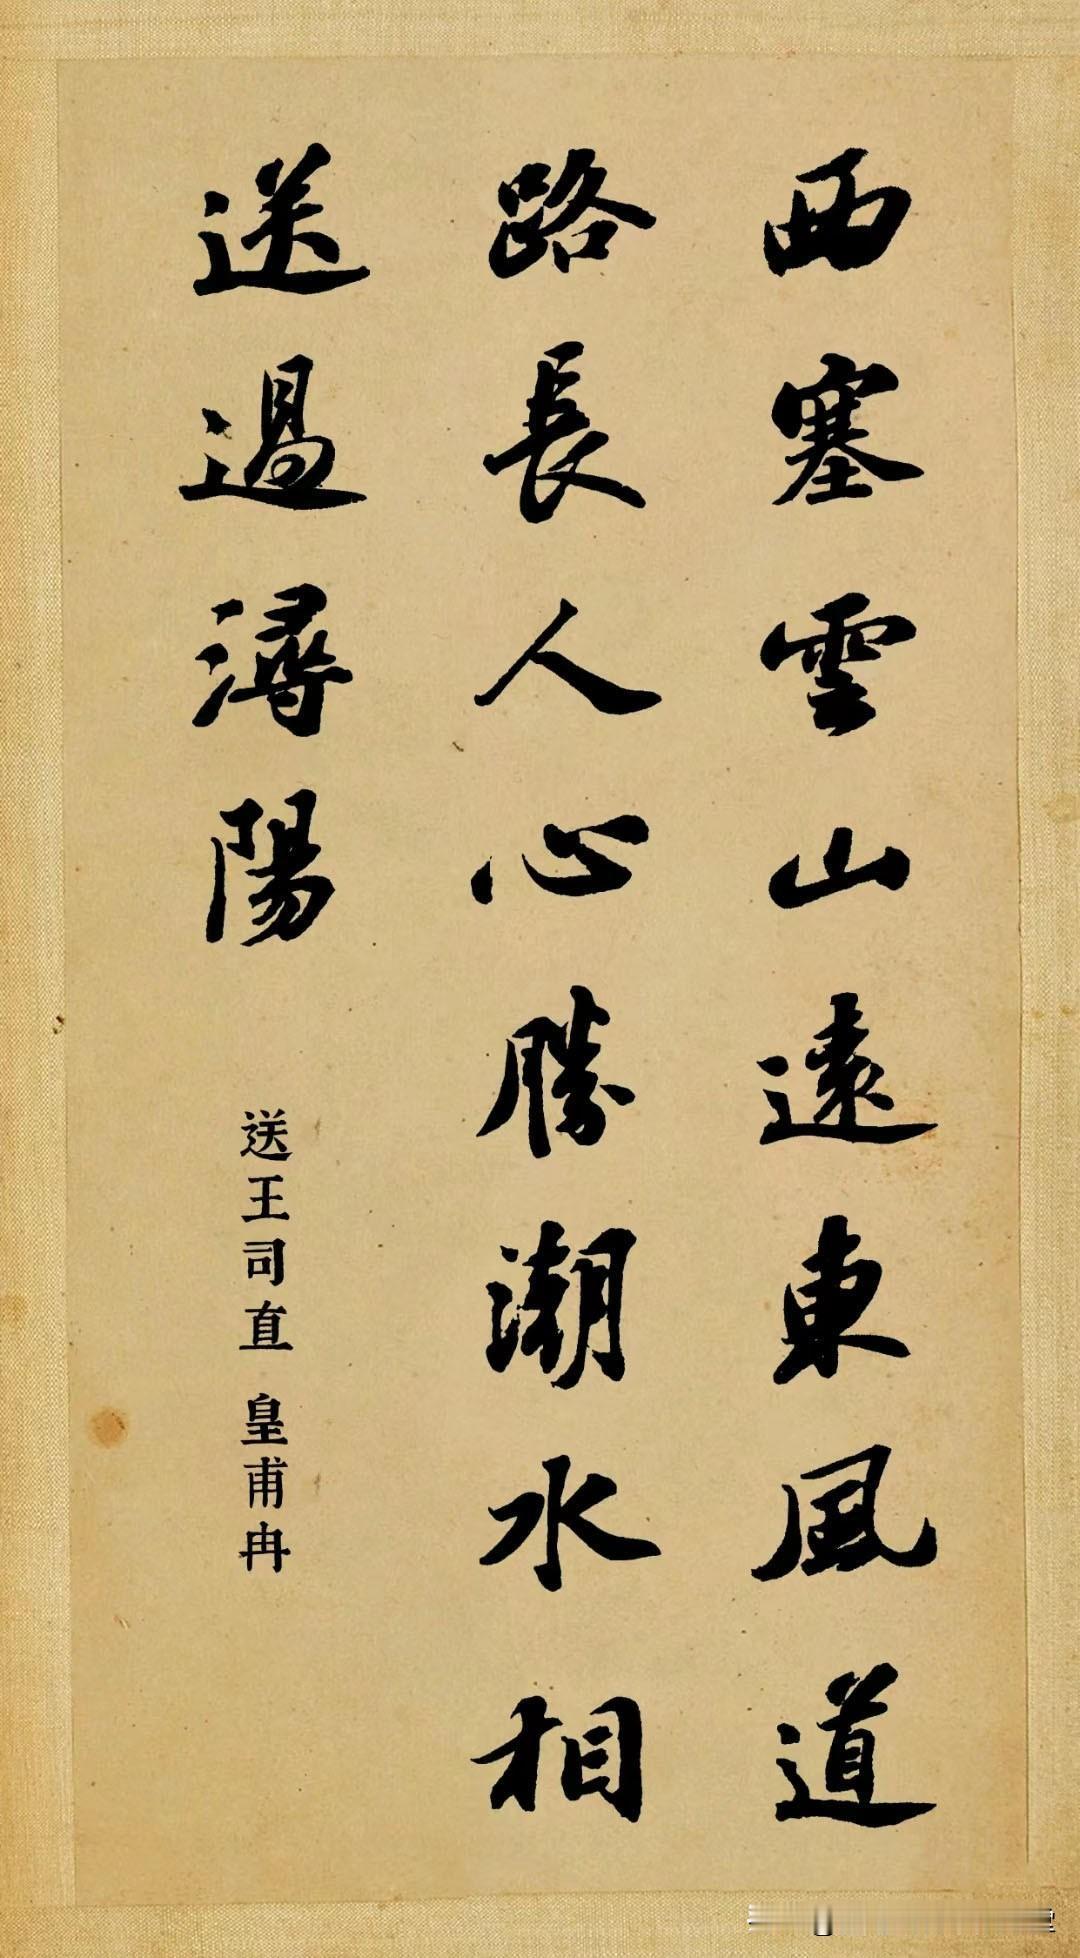 西塞雲山遠東風道
路長人心勝潮水相
送過潯陽
送王司直 皇甫冉